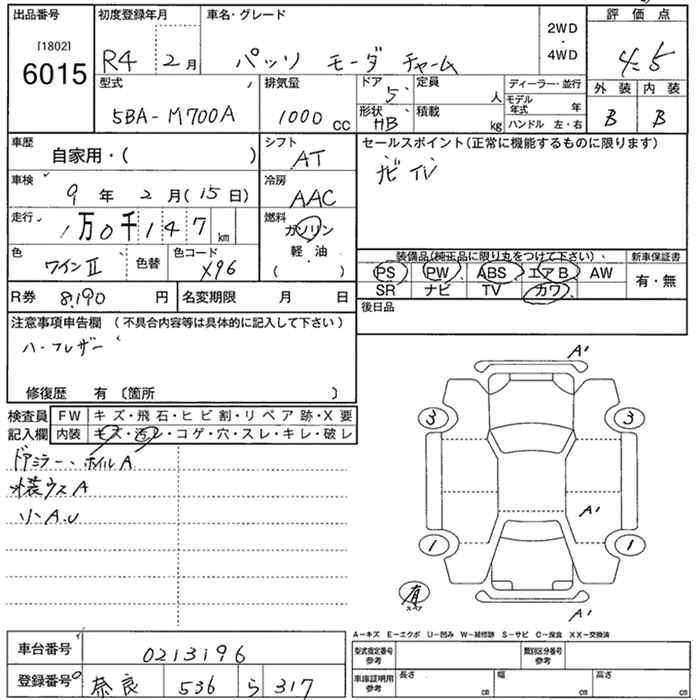 出品番号
[1802]
6015
初度登録年月
R4 2月
車名・グレード
パッソ モーダ チャーム
2WD
・
4WD
評価点
4.5
型式
5BA-M700A
排気量
1000 cc
ドア
5
形状
HB
定員
人
積載
kg
ディーラー・並行
モデル年式 年
ハンドル 左・右
外装 内装
B B
車歴
自家用・( )
シフト
AT
セールスポイント(正常に機能するものに限ります)
ナビ TV
車検
9年 2月(15日)
冷房
AAC
走行
1万0千147km
燃料
ガソリン
軽・油
( )
色
ワインII
色替
色コード
X96
装備品(純正品に限り丸をつけて下さい)
PS PW ABS エアB AW
SR ナビ TV カワ
新車保証書
有・無
R券 8,190円
名変期限 月 日
後日品
注意事項申告欄 (不具合内容等は具体的に記入して下さい)
修復歴 有 〔箇所 〕
検査員記入欄
FW キズ・飛石・ヒビ割・リペア跡・X要
内装 キズ・汚レ・コゲ・穴・スレ・キレ・破レ
ドアミラー、ホイルA
外装ウスA
リンA.U
A'
3 3
A'
1 1
有
スペア
A'
A－キズ E－エクボ U－凹み W－補修跡 S－サビ C－腐食 XX－交換済
車台番号
0213196
登録番号
奈良 536 ら 317
型式指定番号
参考
類別区分番号
参考
車庫証明用
参考
長さ cm
幅 cm
高さ cm